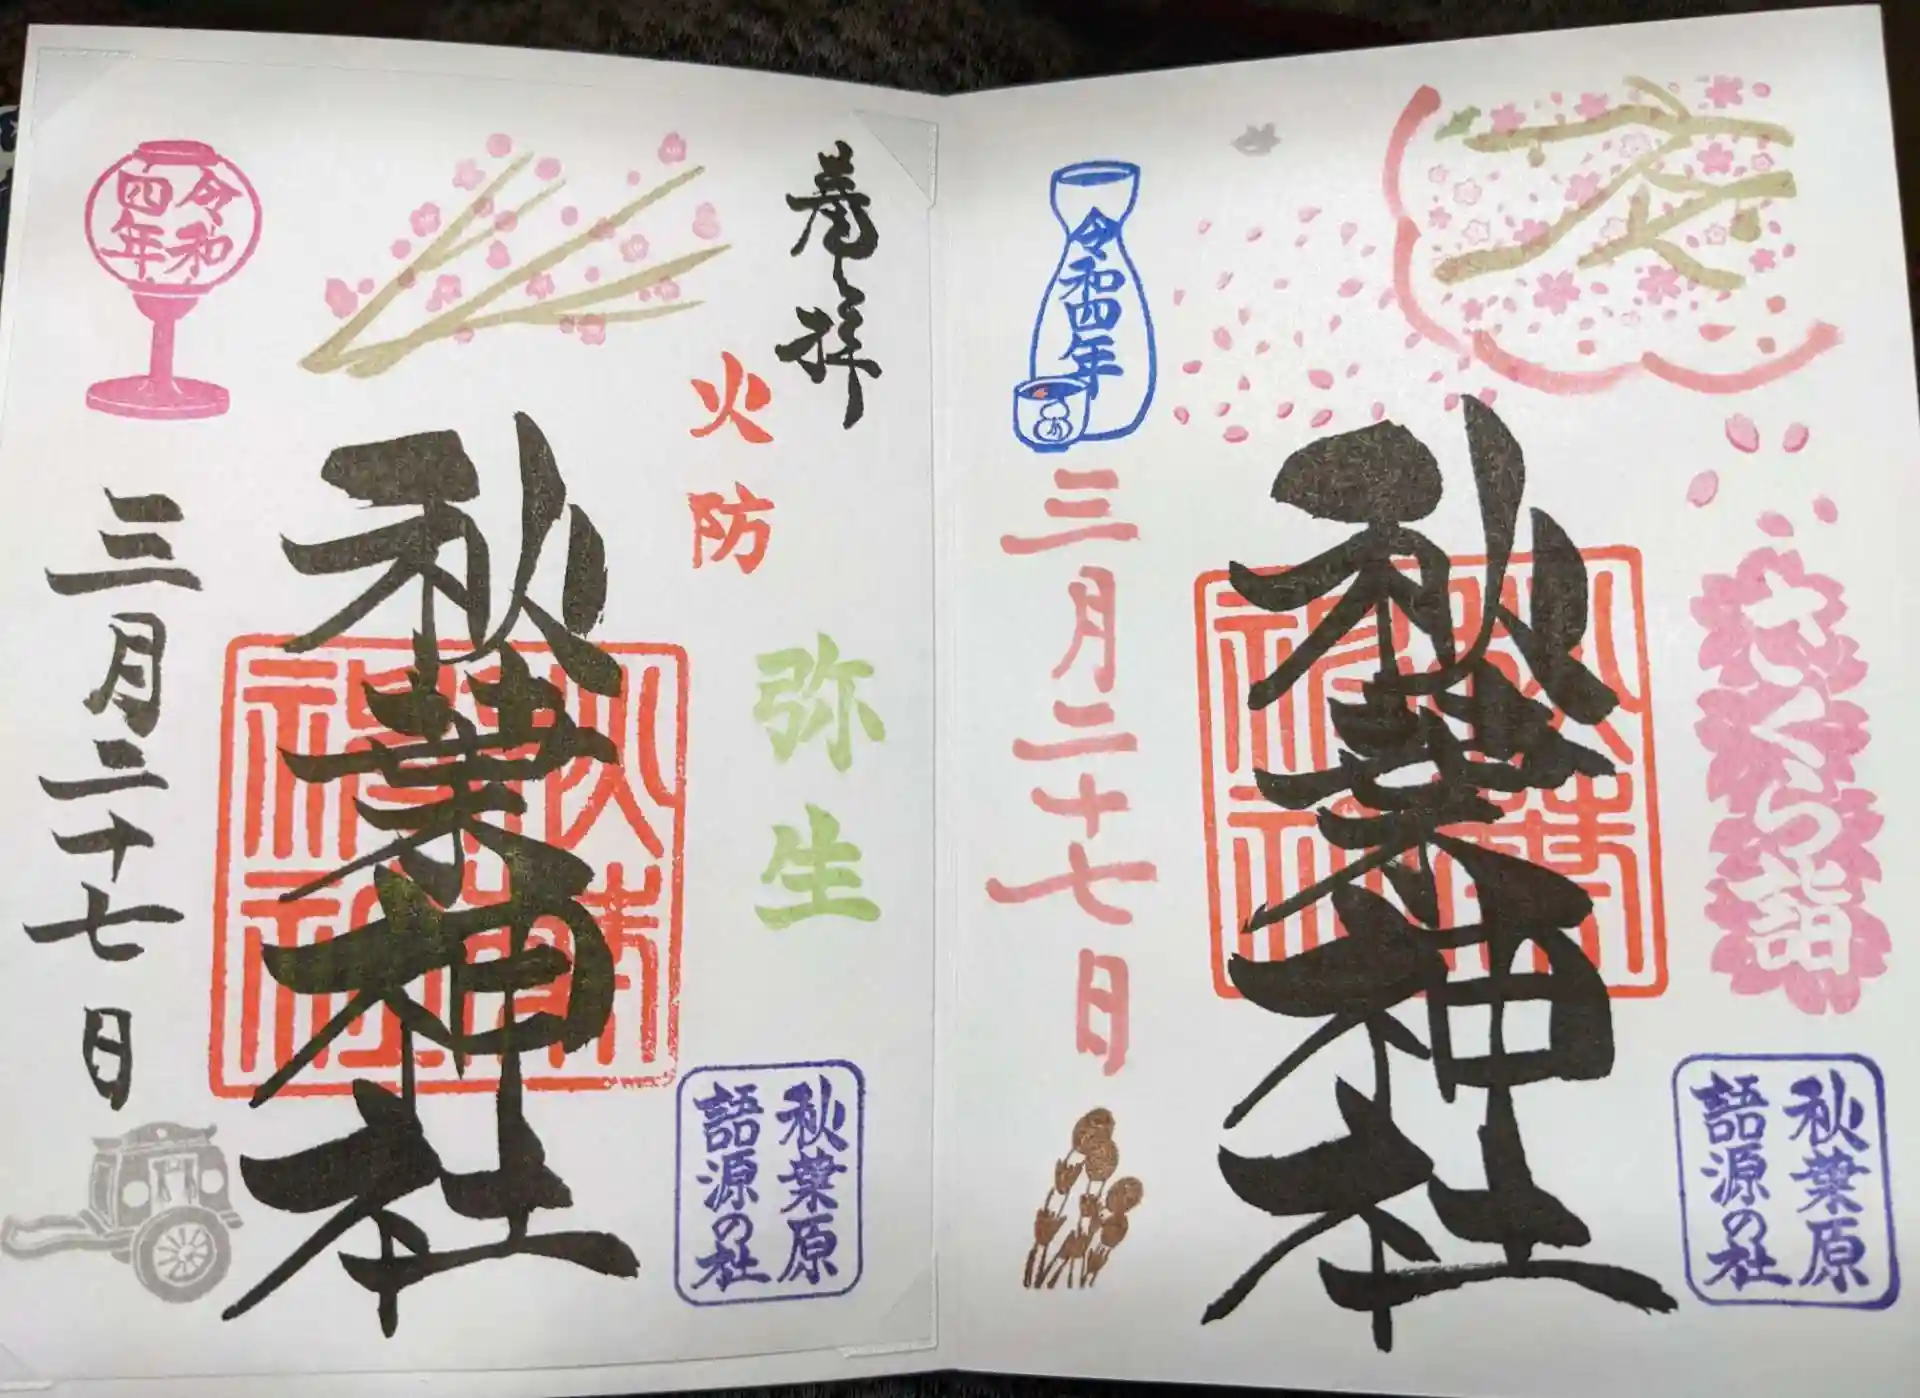 奉拝
火防
弥生
秋葉原
語源の社
秋葉神社
令和
四年
三月二十七日
さくら詣
秋葉原
語源の社
秋葉神社
令和四年
三月二十七日